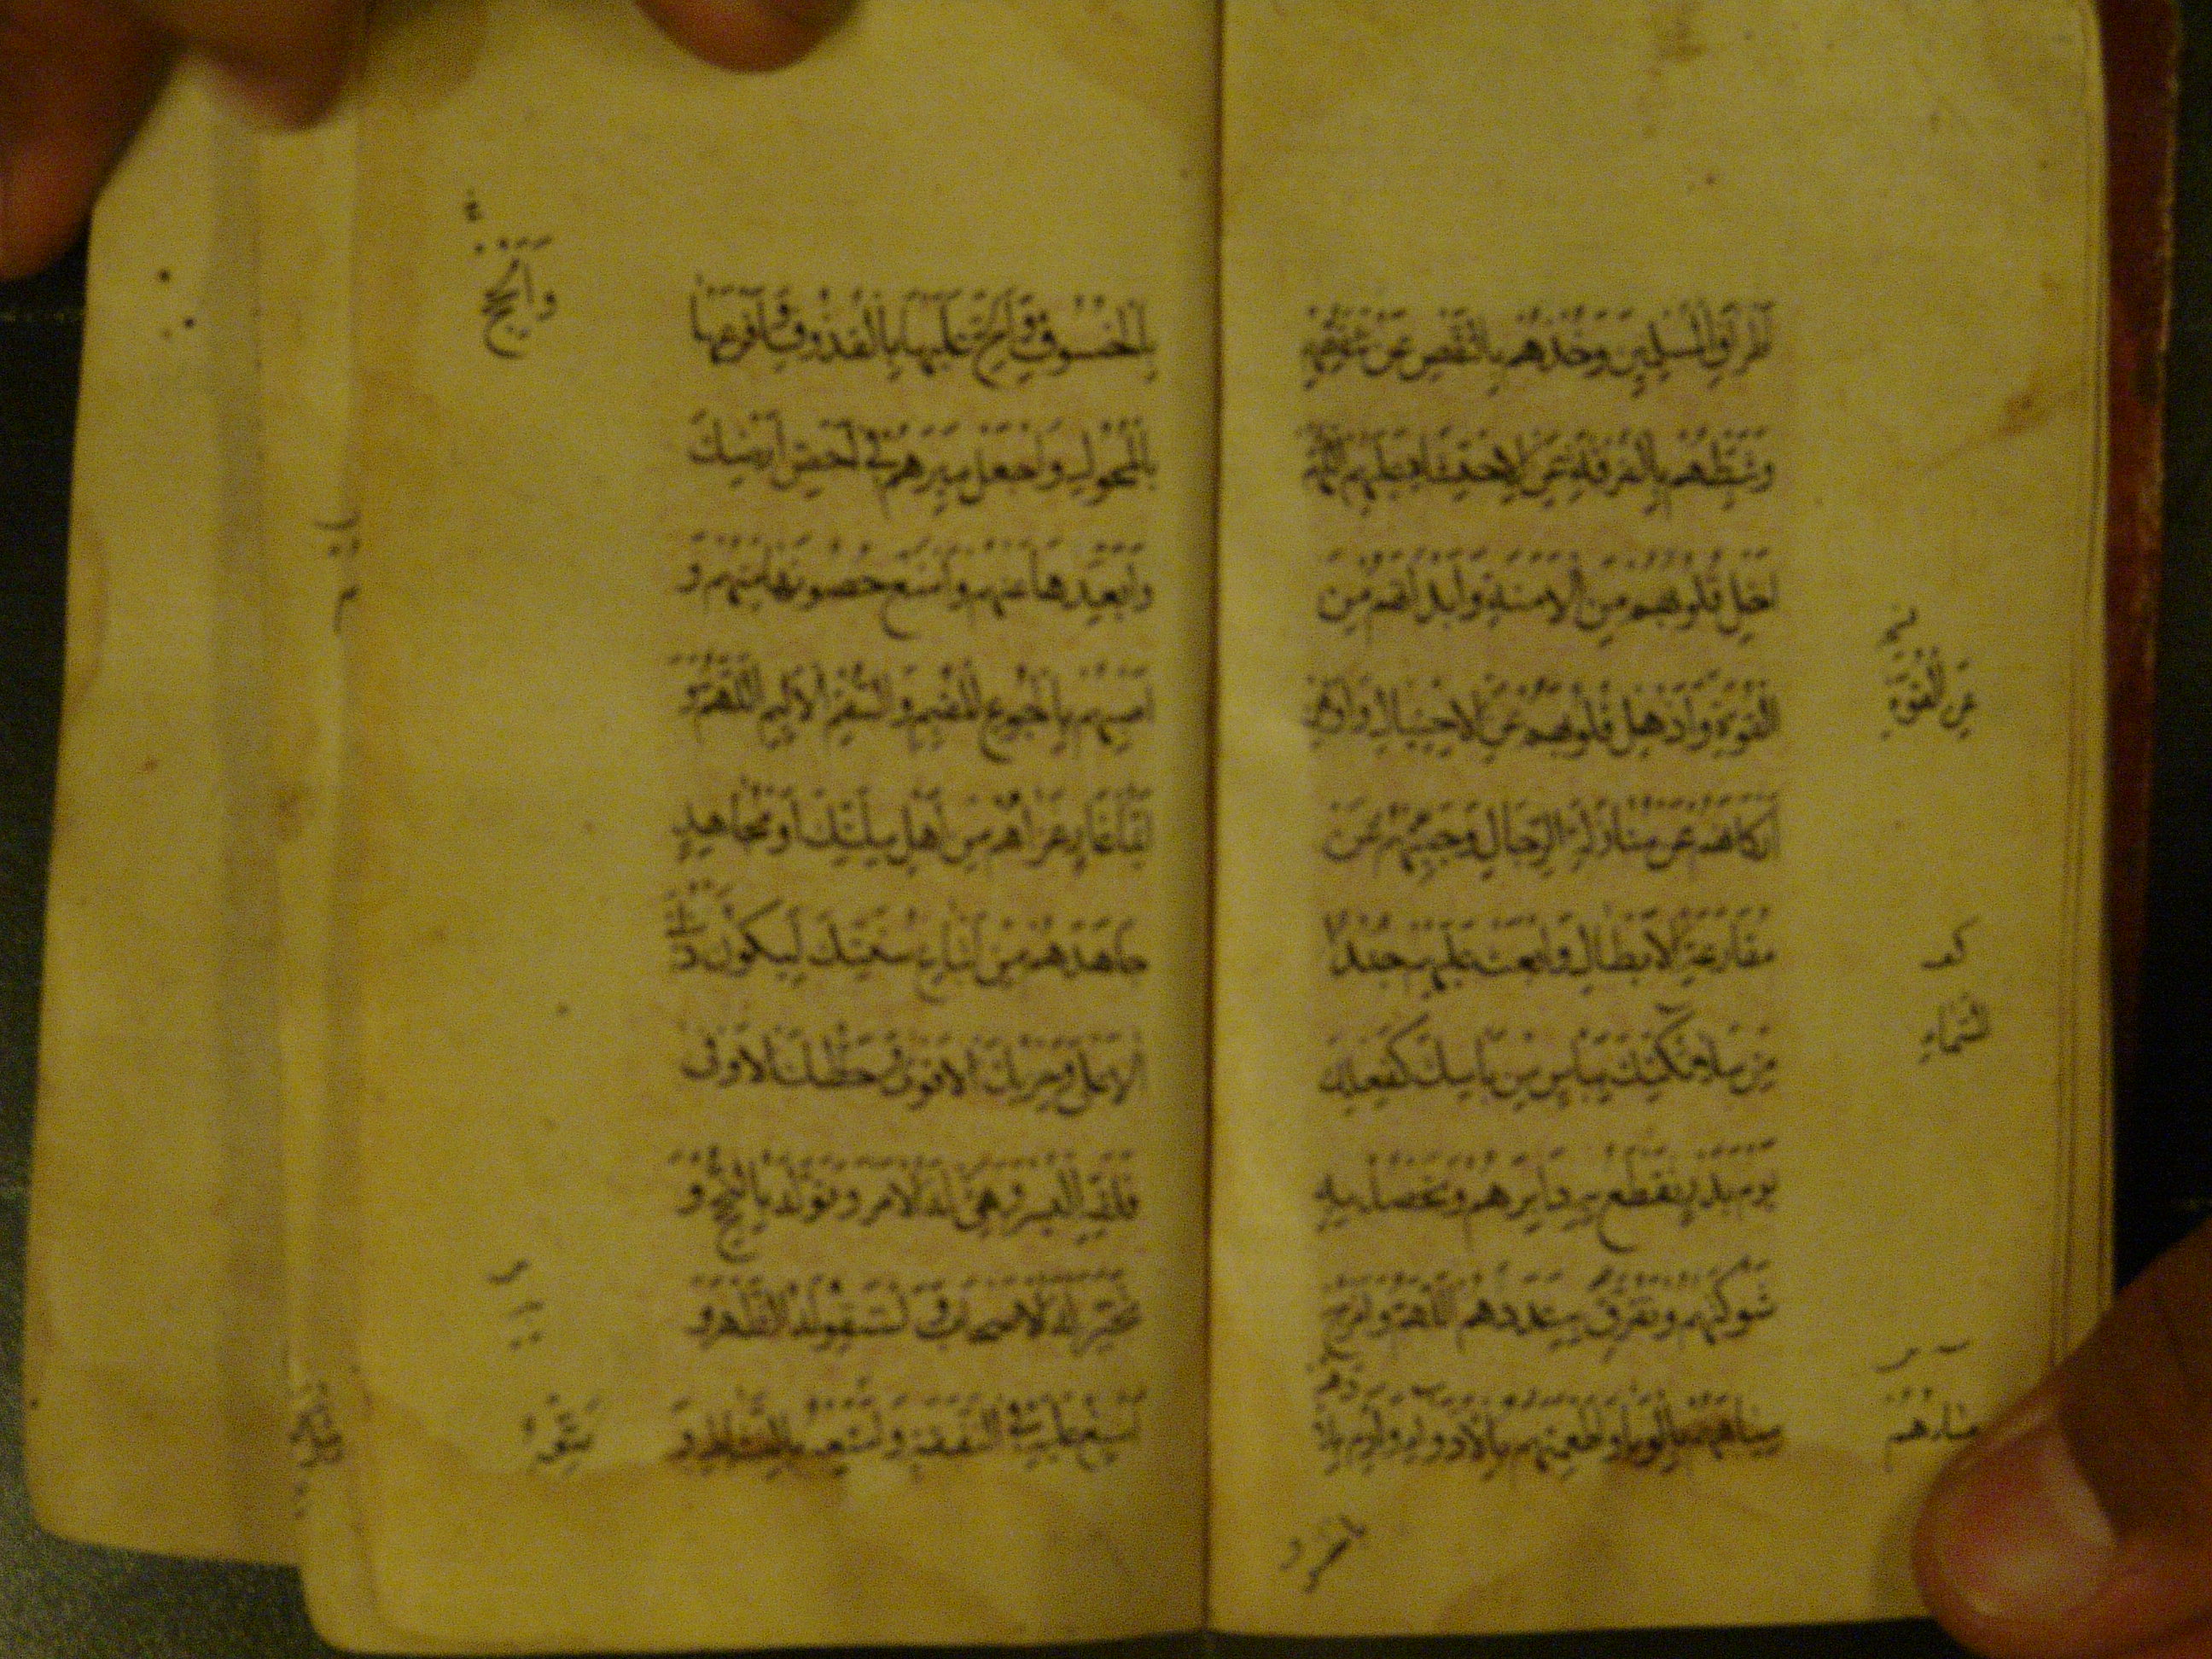 أطراف المسلمين وخذهم بالنقص عن تنقصهم
وثبطهم بالفرقة عن الاحتشاد عليهم اللهم
اخل قلوبهم من الامنة وابدانهم من
القوة واذهل قلوبهم عن الاحتيال واوهن
اركانهم عن منازلة الرجال وجبنهم عن
مقارعة الابطال وابعث عليهم جندا
من ملائكتك بباس من باسك كفعلك
يوم بدر تقطع به دابرهم وتحصد به
شوكتهم وتفرق به عددهم اللهم وامزج
مياههم بالوباء واطعمتهم بالادواء وارم بلا
دهم
عن القوة
السماء
بالخسوف والح عليها بالقذوف وافرعها
بالمحول واجعل ميرهم في احص ارضك
وابعدها عنهم وامنع حصونها منهم و
اصبهم بالجوع المقيم والسقم الاليم اللهم و
ايما غاز غزاهم من اهل ملتك او مجاهد
جاهدهم من اتباع سنتك ليكون دينك
الاعلى وحزبك الاقوى وحظك الاوفى
فلقه اليسر وهيئ له الامر وتوله بالنجح و
تخير له الاصحاب واستقو له الظهر و
اسبغ عليه في النفقة ومتعه بالنشاط و